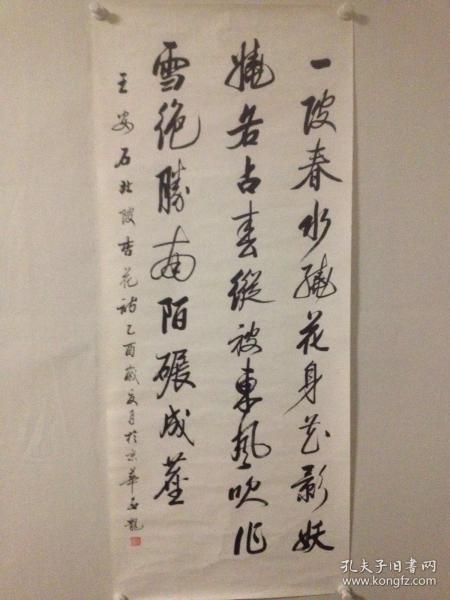 一陂春水繞花身花影妖
嬈各占春縱被東風吹作
雪絕勝南陌碾成塵
王安石北陂杏花詩乙酉歲夏月於京華龍
孔夫子旧书网
www.kongfz.com